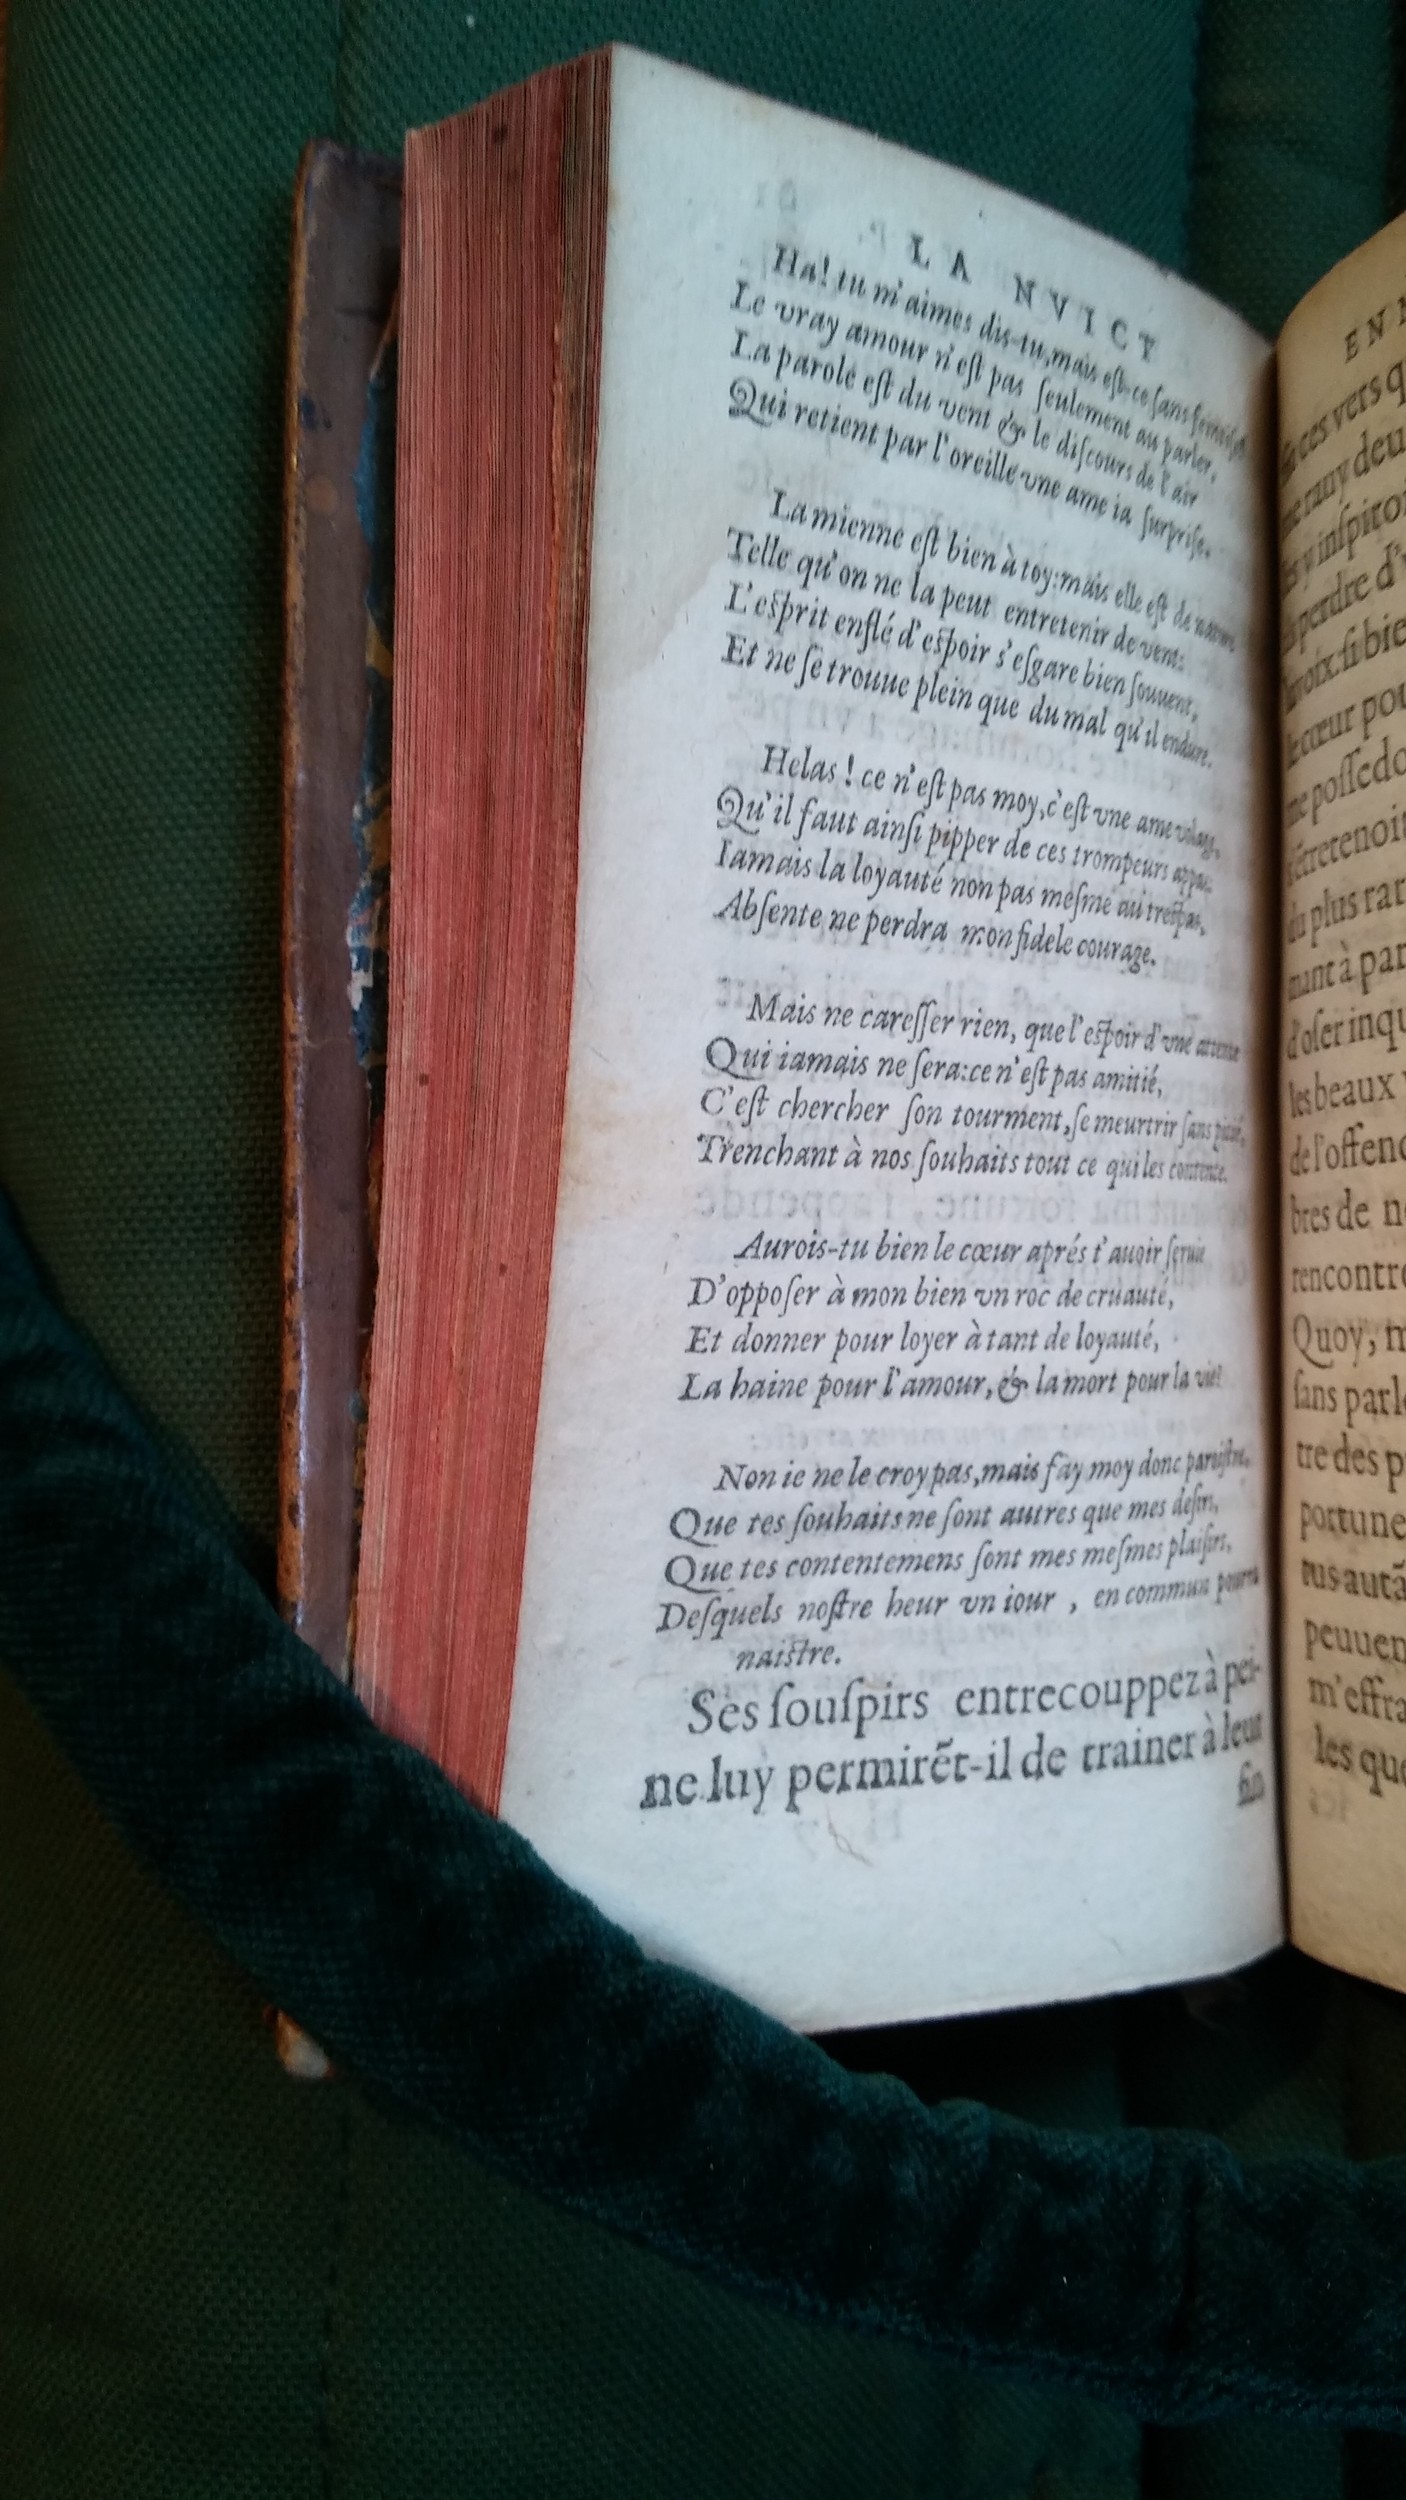 LA NVICT
Ha! tu m'aimes dis-tu, mais est-ce sans
Le vray amour n'est pas seulement au parler,
La parole est du vent & le discours de l'air
Qui retient par l'oreille vne ame ia surprise.
La mienne est bien à toy: mais elle est de nature
Telle qu'on ne la peut entretenir de vent:
L'esprit enflé d'espoir s'esgare bien souuent,
Et ne se trouue plein que du mal qu'il endure.
Helas! ce n'est pas moy, c'est vne ame volage,
Qu'il faut ainsi pipper de ces trompeurs appas,
Iamais la loyauté non pas mesme au trespas,
Absente ne perdra mon fidele courage.
Mais ne caresser rien, que l'espoir d'vne attente
Qui iamais ne sera: ce n'est pas amitié,
C'est chercher son tourment, se meurtrir sans pitié,
Trenchant à nos souhaits tout ce qui les contente.
Aurois-tu bien le cœur aprés t'auoir seruie
D'opposer à mon bien vn roc de cruauté,
Et donner pour loyer à tant de loyauté,
La haine pour l'amour, & la mort pour la vie?
Non ie ne le croy pas, mais fay moy donc paroistre,
Que tes souhaits ne sont autres que mes desirs,
Que tes contentemens sont mes mesmes plaisirs,
Desquels nostre heur vn iour, en commun pourra
naistre.
Ses souspirs entrecouppez à pei-
ne luy permirẽt-il de trainer à leur
fin
EN
ces vers q
rany deu
y inspiroi
perdre d'
voix: si bie
le cœur pou
me possedo
du plus rar
nant à par
d'oser inqu
les beaux
de l'offenc
bres de n
rencontre
Quoy, m
sans parle
tre des p
portune
tus autã
peuuen
m'effra
les que